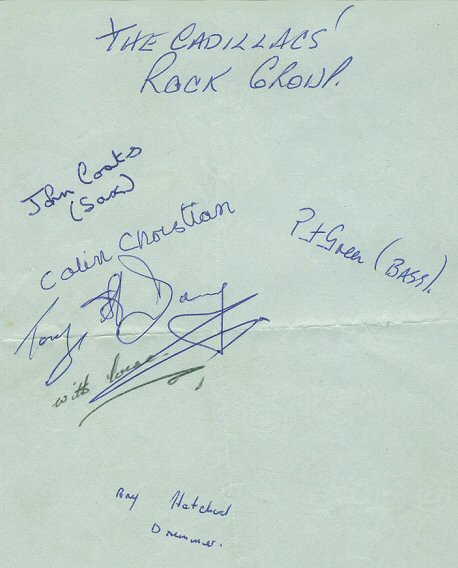 THE CADILLACS'
ROCK GROUP.
John Coats
(Sax)
Colin Christian
P Green (BASS).
Tony
with love
Ray Hatchard
Drummer.